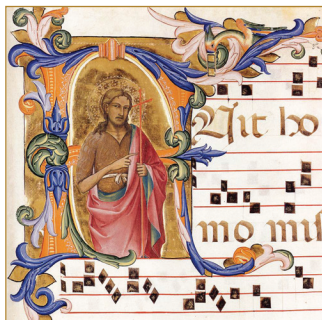 FUit ho
mo miſ